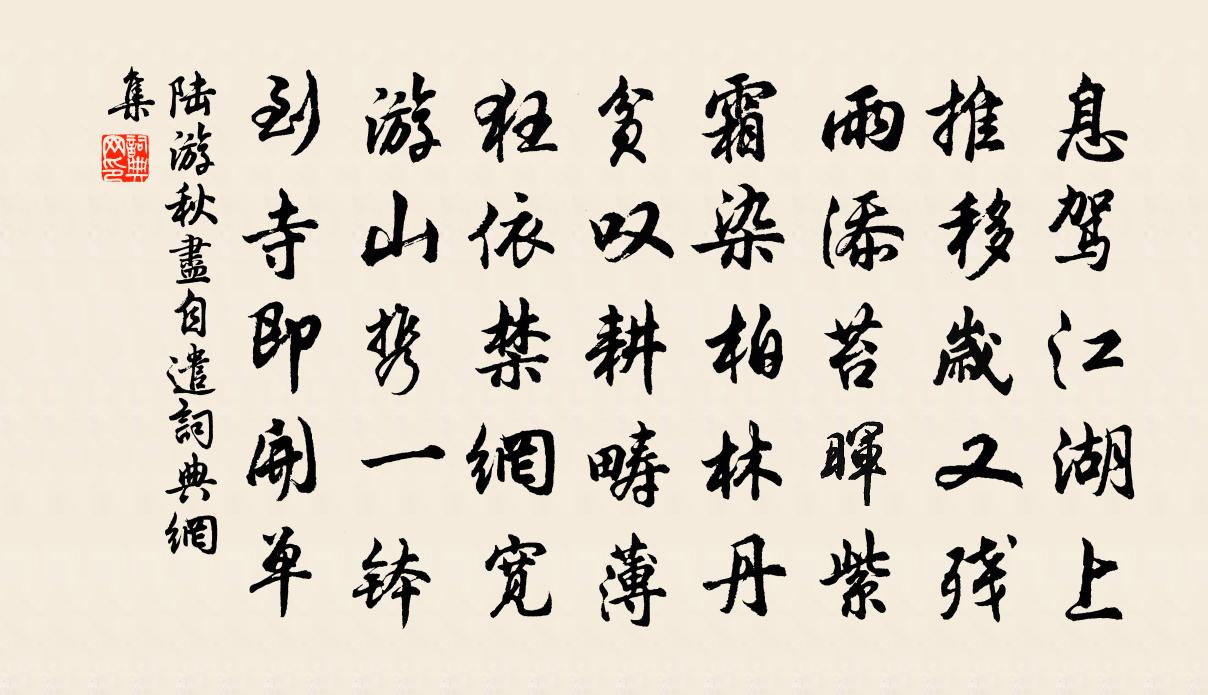 息驾江湖上
推移歲又残
雨添苔暉紫
霜染柏林丹
貧叹耕疇薄
狂依禁網寬
游山携一钵
到寺即開单
陆游秋盡自遣詞典網
集
詞典网印